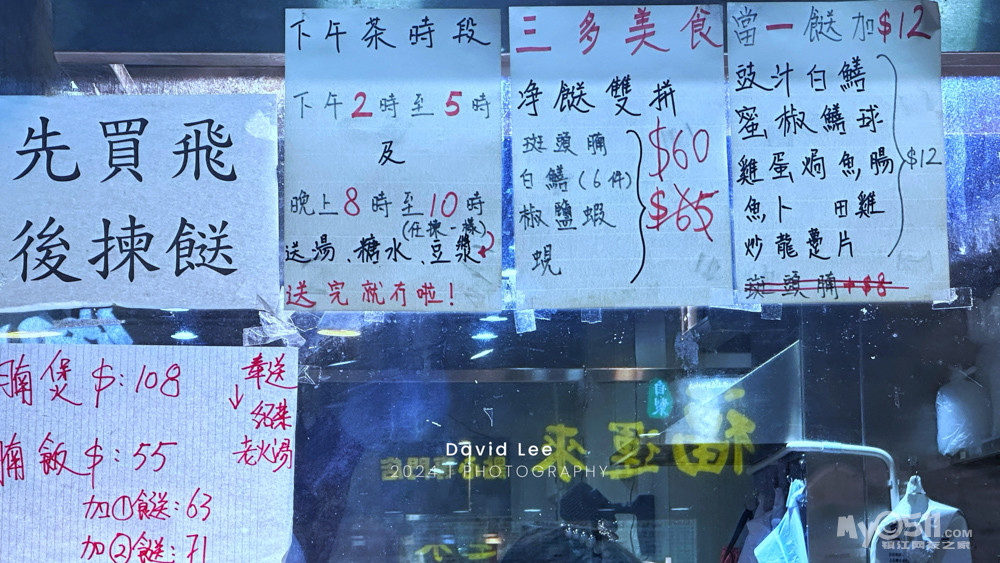 先買飛
後揀餸
下午茶時段
下午2時至5時
及
晚上8時至10時
(任揀一樣)
送湯、糖水、豆漿
送完就冇啦!
三多美食
净餸雙拼
斑頭腩
白鱔(6件)
椒鹽蝦
蜆
$60
$65
當一餸加$12
豉汁白鱔
蜜椒鱔球
雞蛋焗魚腸
魚卜 田雞
炒龍躉片
$12
斑頭腩+$8
腩煲 $:108
腩飯 $:55
加①餸:63
加②餸:71
奉送
↓
例菜
老火湯
福運來
David Lee
2024 | PHOTOGRAPHY
My0511.com
镇江网友之家